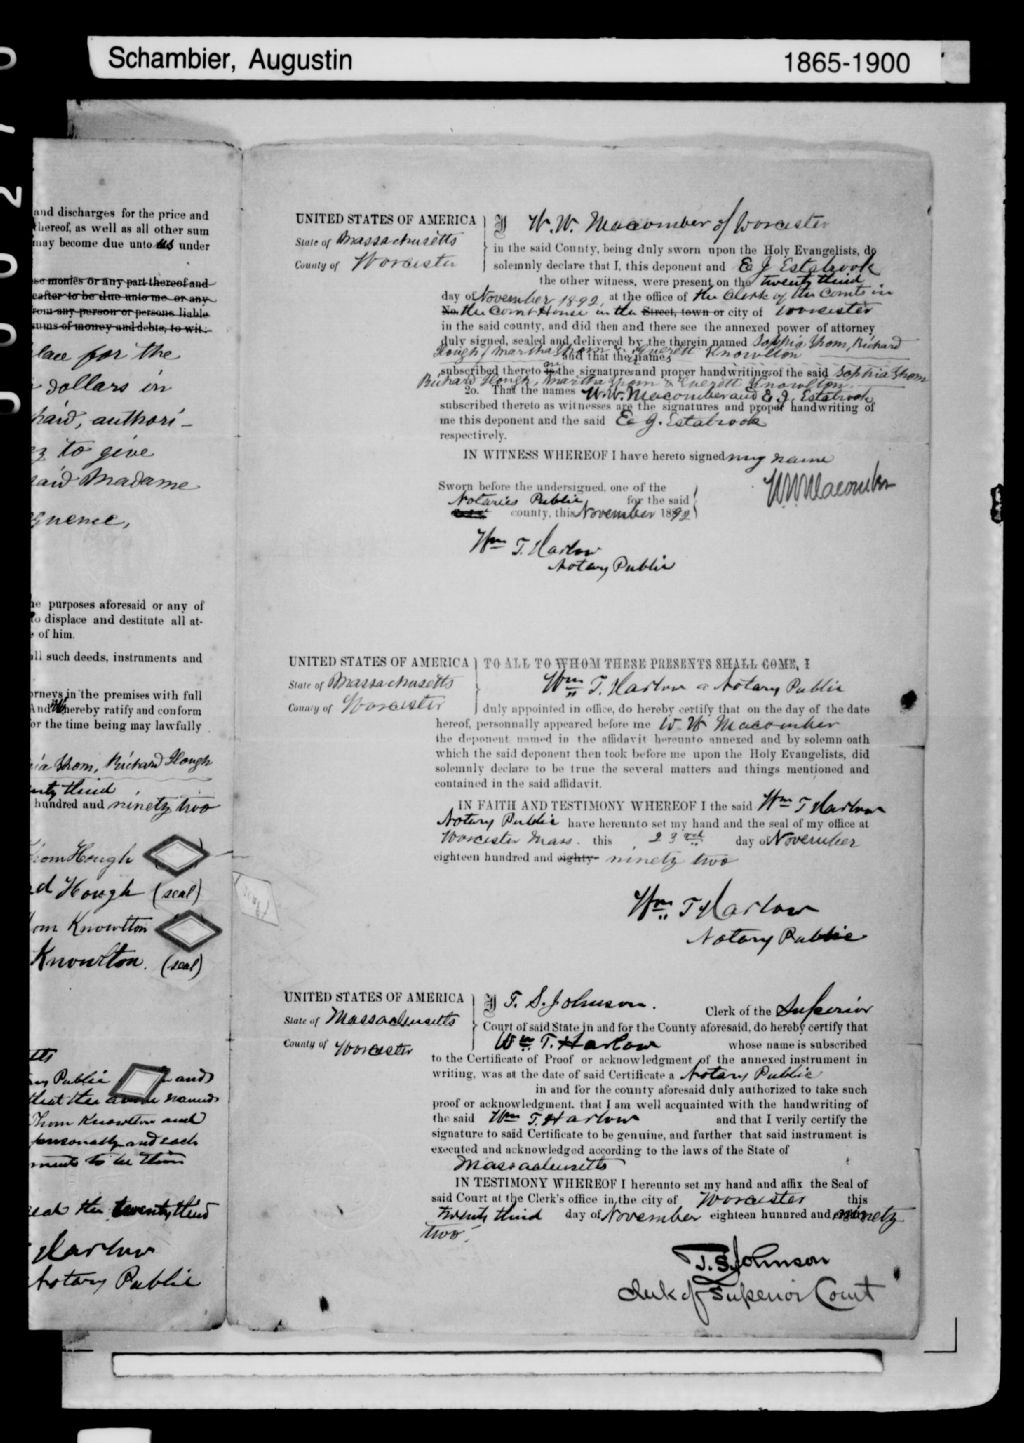 Schambier, Augustin
1865-1900
and discharges for the price and
thereof, as well as all other sum
may become due unto us under
se monies or any part thereof and
eafter to be due unto me or any
rom any person or persons liable
sums of money and debts, to wit.
lace for the
dollars in
said, authori-
to give
said Madame
quence,
he purposes aforesaid or any of
to displace and destitute all at-
of him.
all such deeds, instruments and
orneys in the premises with full
And hereby ratify and conform
or the time being may lawfully
ia Thom, Richard Hough
nty third
hundred and ninety two
Thom Hough
rd Hough (seal)
Thom Knowlton
Knowlton. (seal)
tts
ry Public and
that the above named
Thom Knowlton and
personally and each
ments to be their
seal the twenty third
Harlow
Notary Public
UNITED STATES OF AMERICA
State of Massachusetts
County of Worcester
I W. W. Macomber of Worcester
in the said County, being duly sworn upon the Holy Evangelists, do
solemnly declare that I, this deponent and E J Estabrook
the other witness, were present on the twenty third
day of November 1892, at the office of the Clerk of the Courts in
No. the Court House in the Street, town or city of Worcester
in the said county, and did then and there see the annexed power of attorney
duly signed, sealed and delivered by the therein named Sophia Thom, Richard
Hough, Martha Thom & Everett Knowlton
and that the names
subscribed thereto are the signatures and proper handwritings of the said Sophia Thom
Richard Hough, Martha Thom & Everett Knowlton
2o. That the names W. W. Macomber and E. J. Estabrook
subscribed thereto as witnesses are the signatures and proper handwriting of
me this deponent and the said E. J. Estabrook
respectively.
IN WITNESS WHEREOF I have hereto signed my name
Sworn before the undersigned, one of the
Notaries Public for the said
county, this November 1892
W. W. Macomber
Wm T. Harlow
Notary Public
UNITED STATES OF AMERICA
State of Massachusetts
County of Worcester
TO ALL TO WHOM THESE PRESENTS SHALL COME, I
Wm T. Harlow a Notary Public
duly appointed in office, do hereby certify that on the day of the date
hereof, personnally appeared before me W. W. Macomber
the deponent named in the affidavit hereunto annexed and by solemn oath
which the said deponent then took before me upon the Holy Evangelists, did
solemnly declare to be true the several matters and things mentioned and
contained in the said affidavit.
IN FAITH AND TESTIMONY WHEREOF I the said Wm T Harlow
Notary Public have hereunto set my hand and the seal of my office at
Worcester Mass. this 23rd day of November
eighteen hundred and eighty- ninety two
Wm T Harlow
Notary Public
UNITED STATES OF AMERICA
State of Massachusetts
County of Worcester
I T. S. Johnson. Clerk of the Superior
Court of said State in and for the County aforesaid, do hereby certify that
Wm T. Harlow whose name is subscribed
to the Certificate of Proof or acknowledgment of the annexed instrument in
writing, was at the date of said Certificate a Notary Public
in and for the county aforesaid duly authorized to take such
proof or acknowledgment. that I am well acquainted with the handwriting of
the said Wm T. Harlow and that I verily certify the
signature to said Certificate to be genuine, and further that said instrument is
executed and acknowledged according to the laws of the State of
Massachusetts
IN TESTIMONY WHEREOF I hereunto set my hand and affix the Seal of
said Court at the Clerk's office in the city of Worcester this
twenty third day of November eighteen hundred and ninety
two.
T. S. Johnson
Clerk of Superior Court